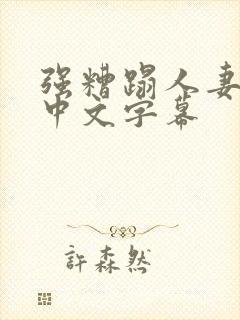 强糟蹋人妻
中文字幕
許森然